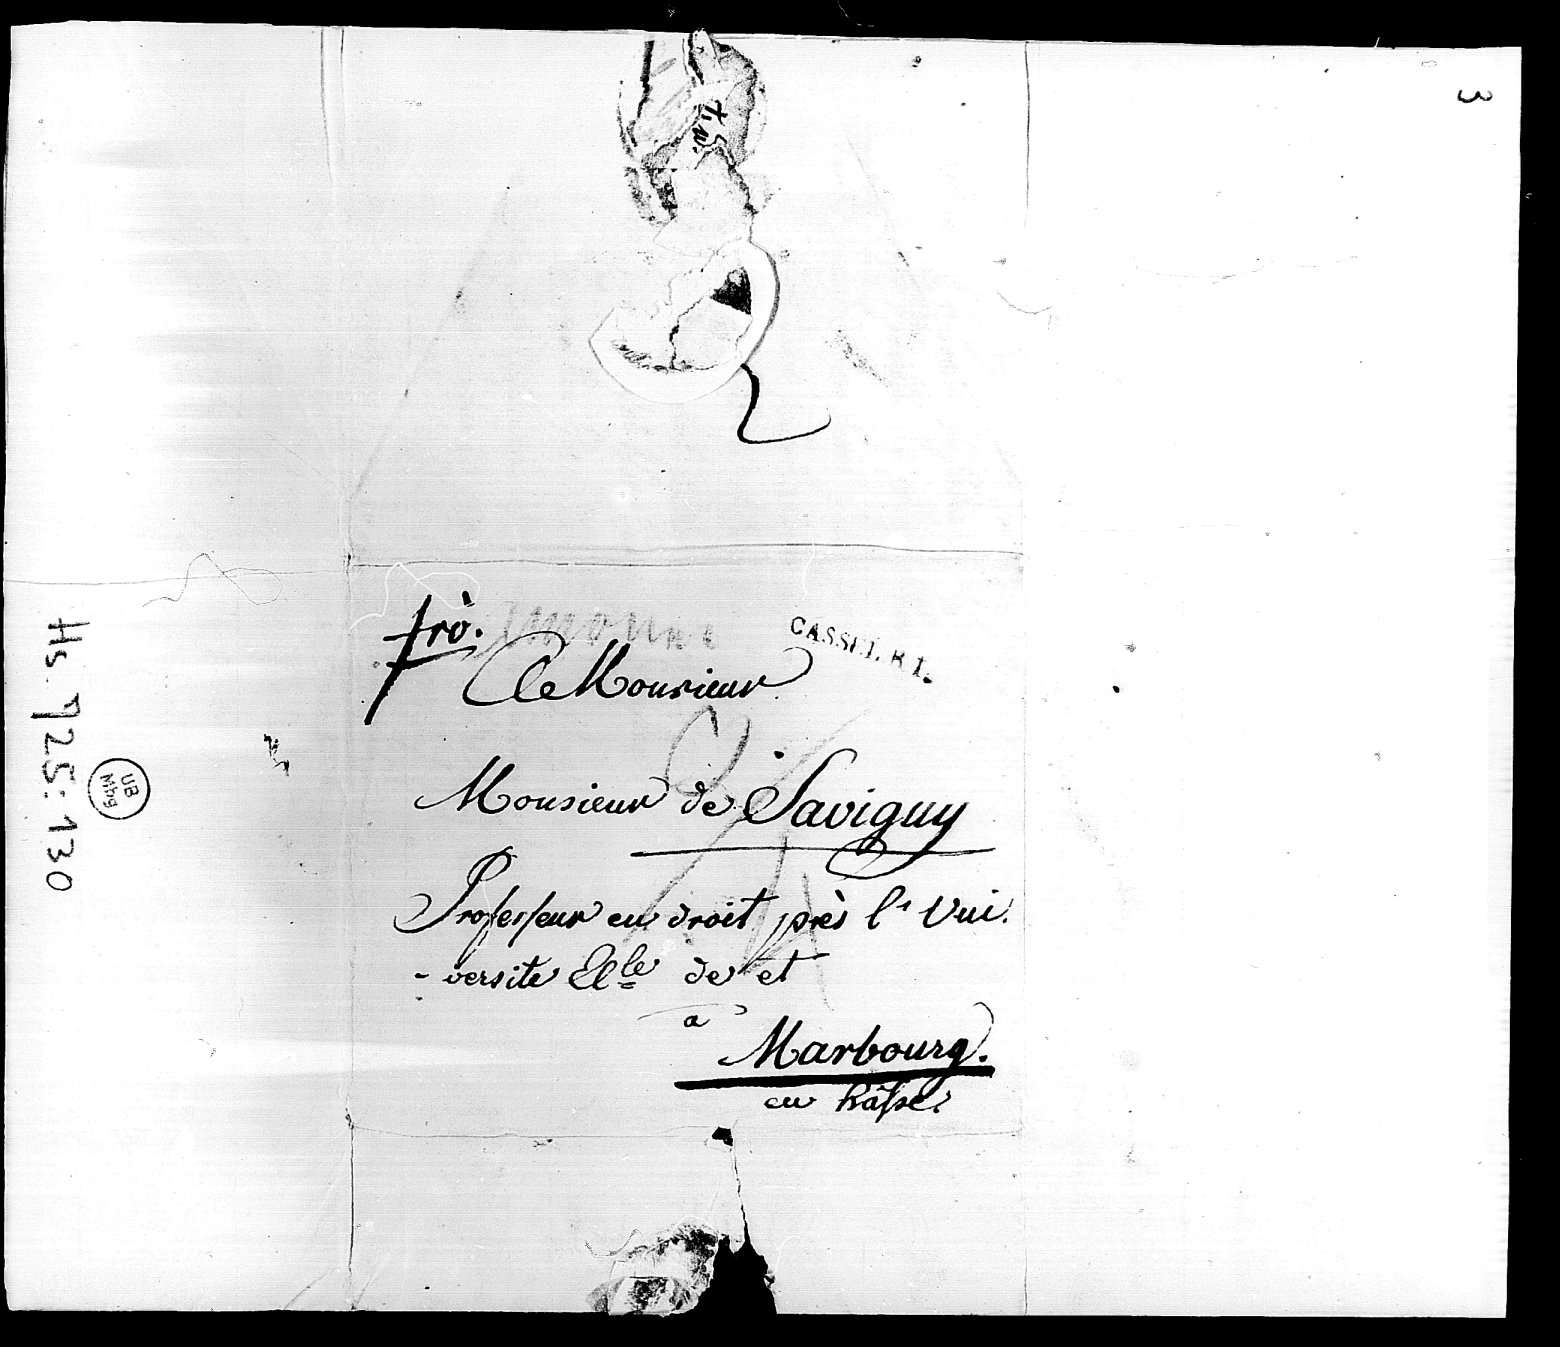 3
frò.
CASSEL R 1.
A Monsieur
Monsieur de Savigny
Professeur en droit près l'Uni.
- versite Elle de et
a
Marbourg.
en Hässe.
Hs. 725:130
UB
Mbg